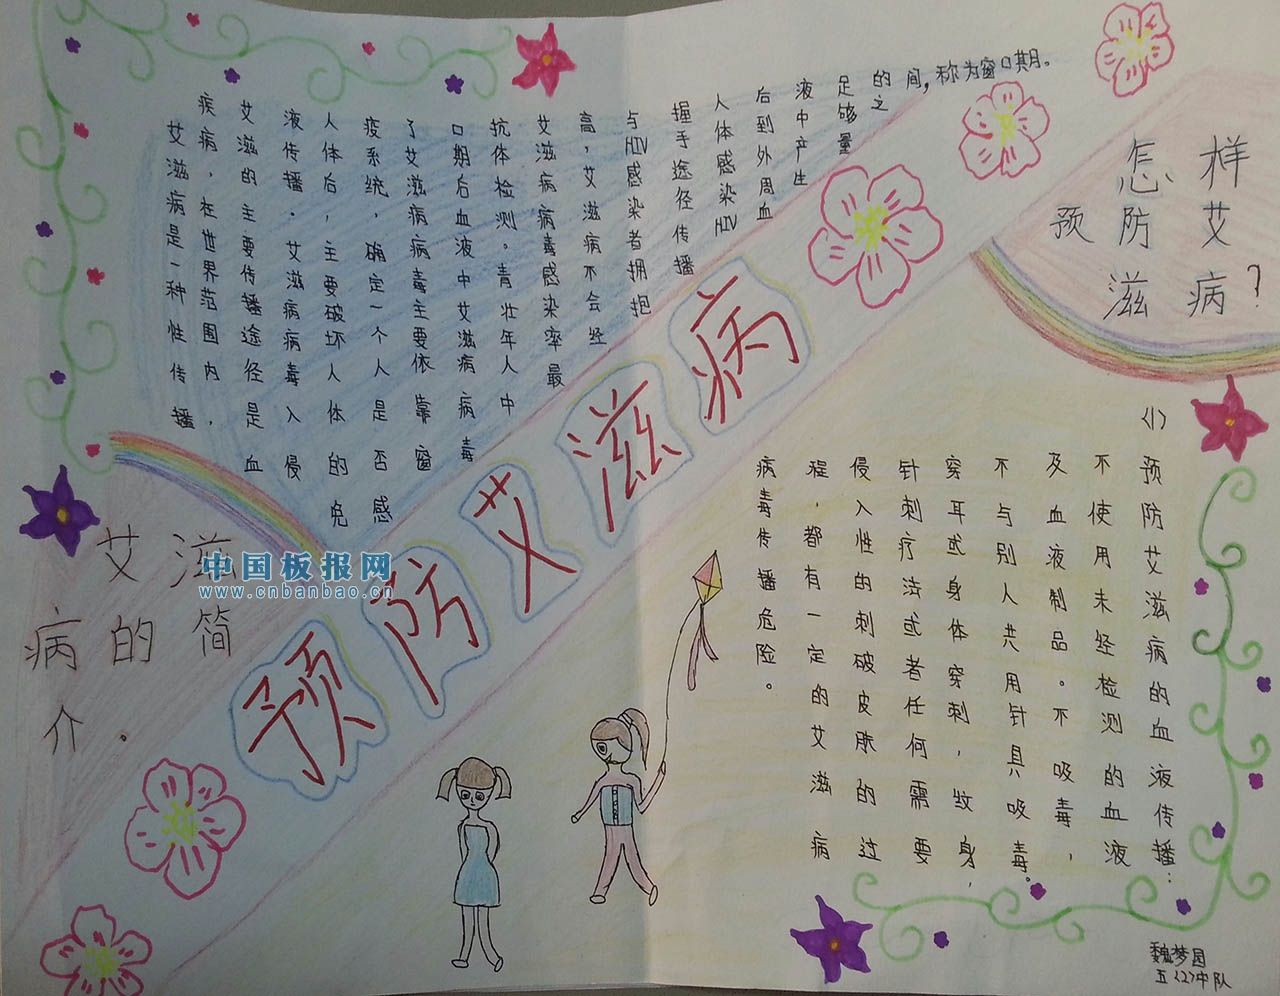 预防艾滋病
艾滋
病的简
介.
艾滋病是一种性传播
疾病，在世界范围内，
艾滋的主要传播途径是血
液传播．艾滋病病毒入侵
人体后，主要破坏人体的免
疫系统，确定一个人是否感
了艾滋病病毒主要依靠窗
口期后血液中艾滋病病毒
抗体检测。青壮年人中
艾滋病病毒感染率最
高，艾滋病不会经
与HIV感染者拥抱
握手途径传播
人体感染HIV
后到外周血
液中产生
足够量
的之
间，称为窗口期。
怎样
预防艾
滋病？
(1)
预防艾滋病的血液传播：
不使用未经检测的血液
及血液制品。不吸毒，
不与别人共用针具吸毒。
穿耳或身体穿刺，纹身，
针刺疗法或者任何需要
侵入性的刺破皮肤的过
程，都有一定的艾滋病
病毒传播危险。
魏梦园
五〈2〉中队
中国板报网
www.cnbanbao.cn